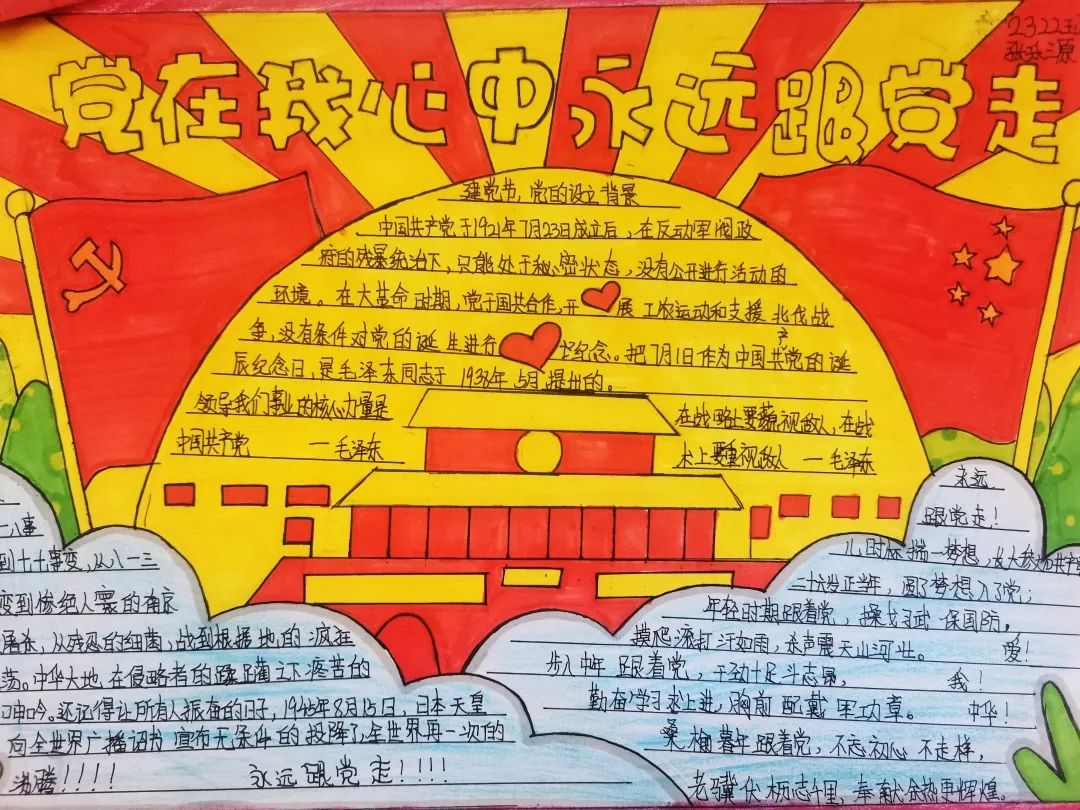 党在我心中永远跟党走
2322
建党节,党的设立背景
中国共产党于1921年7月23日成立后,在反动军阀政
府的残暴统治下,只能处于秘密状态,没有公开进行活动的
环境。在大革命时期,党于国共合作,开展工农运动和支援北伐战
争,没有条件对党的诞生进行纪念。把7月1日作为中国共产党的诞
辰纪念日,是毛泽东同志于1938年5月提出的。
领导我们事业的核心力量是
中国共产党 一毛泽东
在战略上要藐视敌人,在战
术上要重视敌人 一毛泽东
一八事
到七七事变,从八一三
变到惨绝人寰的南京
屠杀,从残忍的细菌战到根据地的疯狂
荡。中华大地,在侵略者的蹂躏之下疼苦的
呻吟。还记得让所有人振奋的日子,1945年8月15日,日本天皇
向全世界广播诏书 宣布无条件的投降了,全世界再一次的
沸腾!!!!
永远跟党走!!!!
永远
跟党走!
儿时怀揣一梦想,
二十六岁正当年,圆了梦想入了党;
年轻时期跟着党,操戈习武保国防,
摸爬滚打汗如雨,杀声震天山河壮。 爱!
步入中年跟着党,干劲十足斗志昂, 我!
勤奋学习求上进,胸前配戴军功章。 中华!
桑榆暮年跟着党,不忘初心不走样,
老骥伏枥志千里,奉献余热更辉煌。